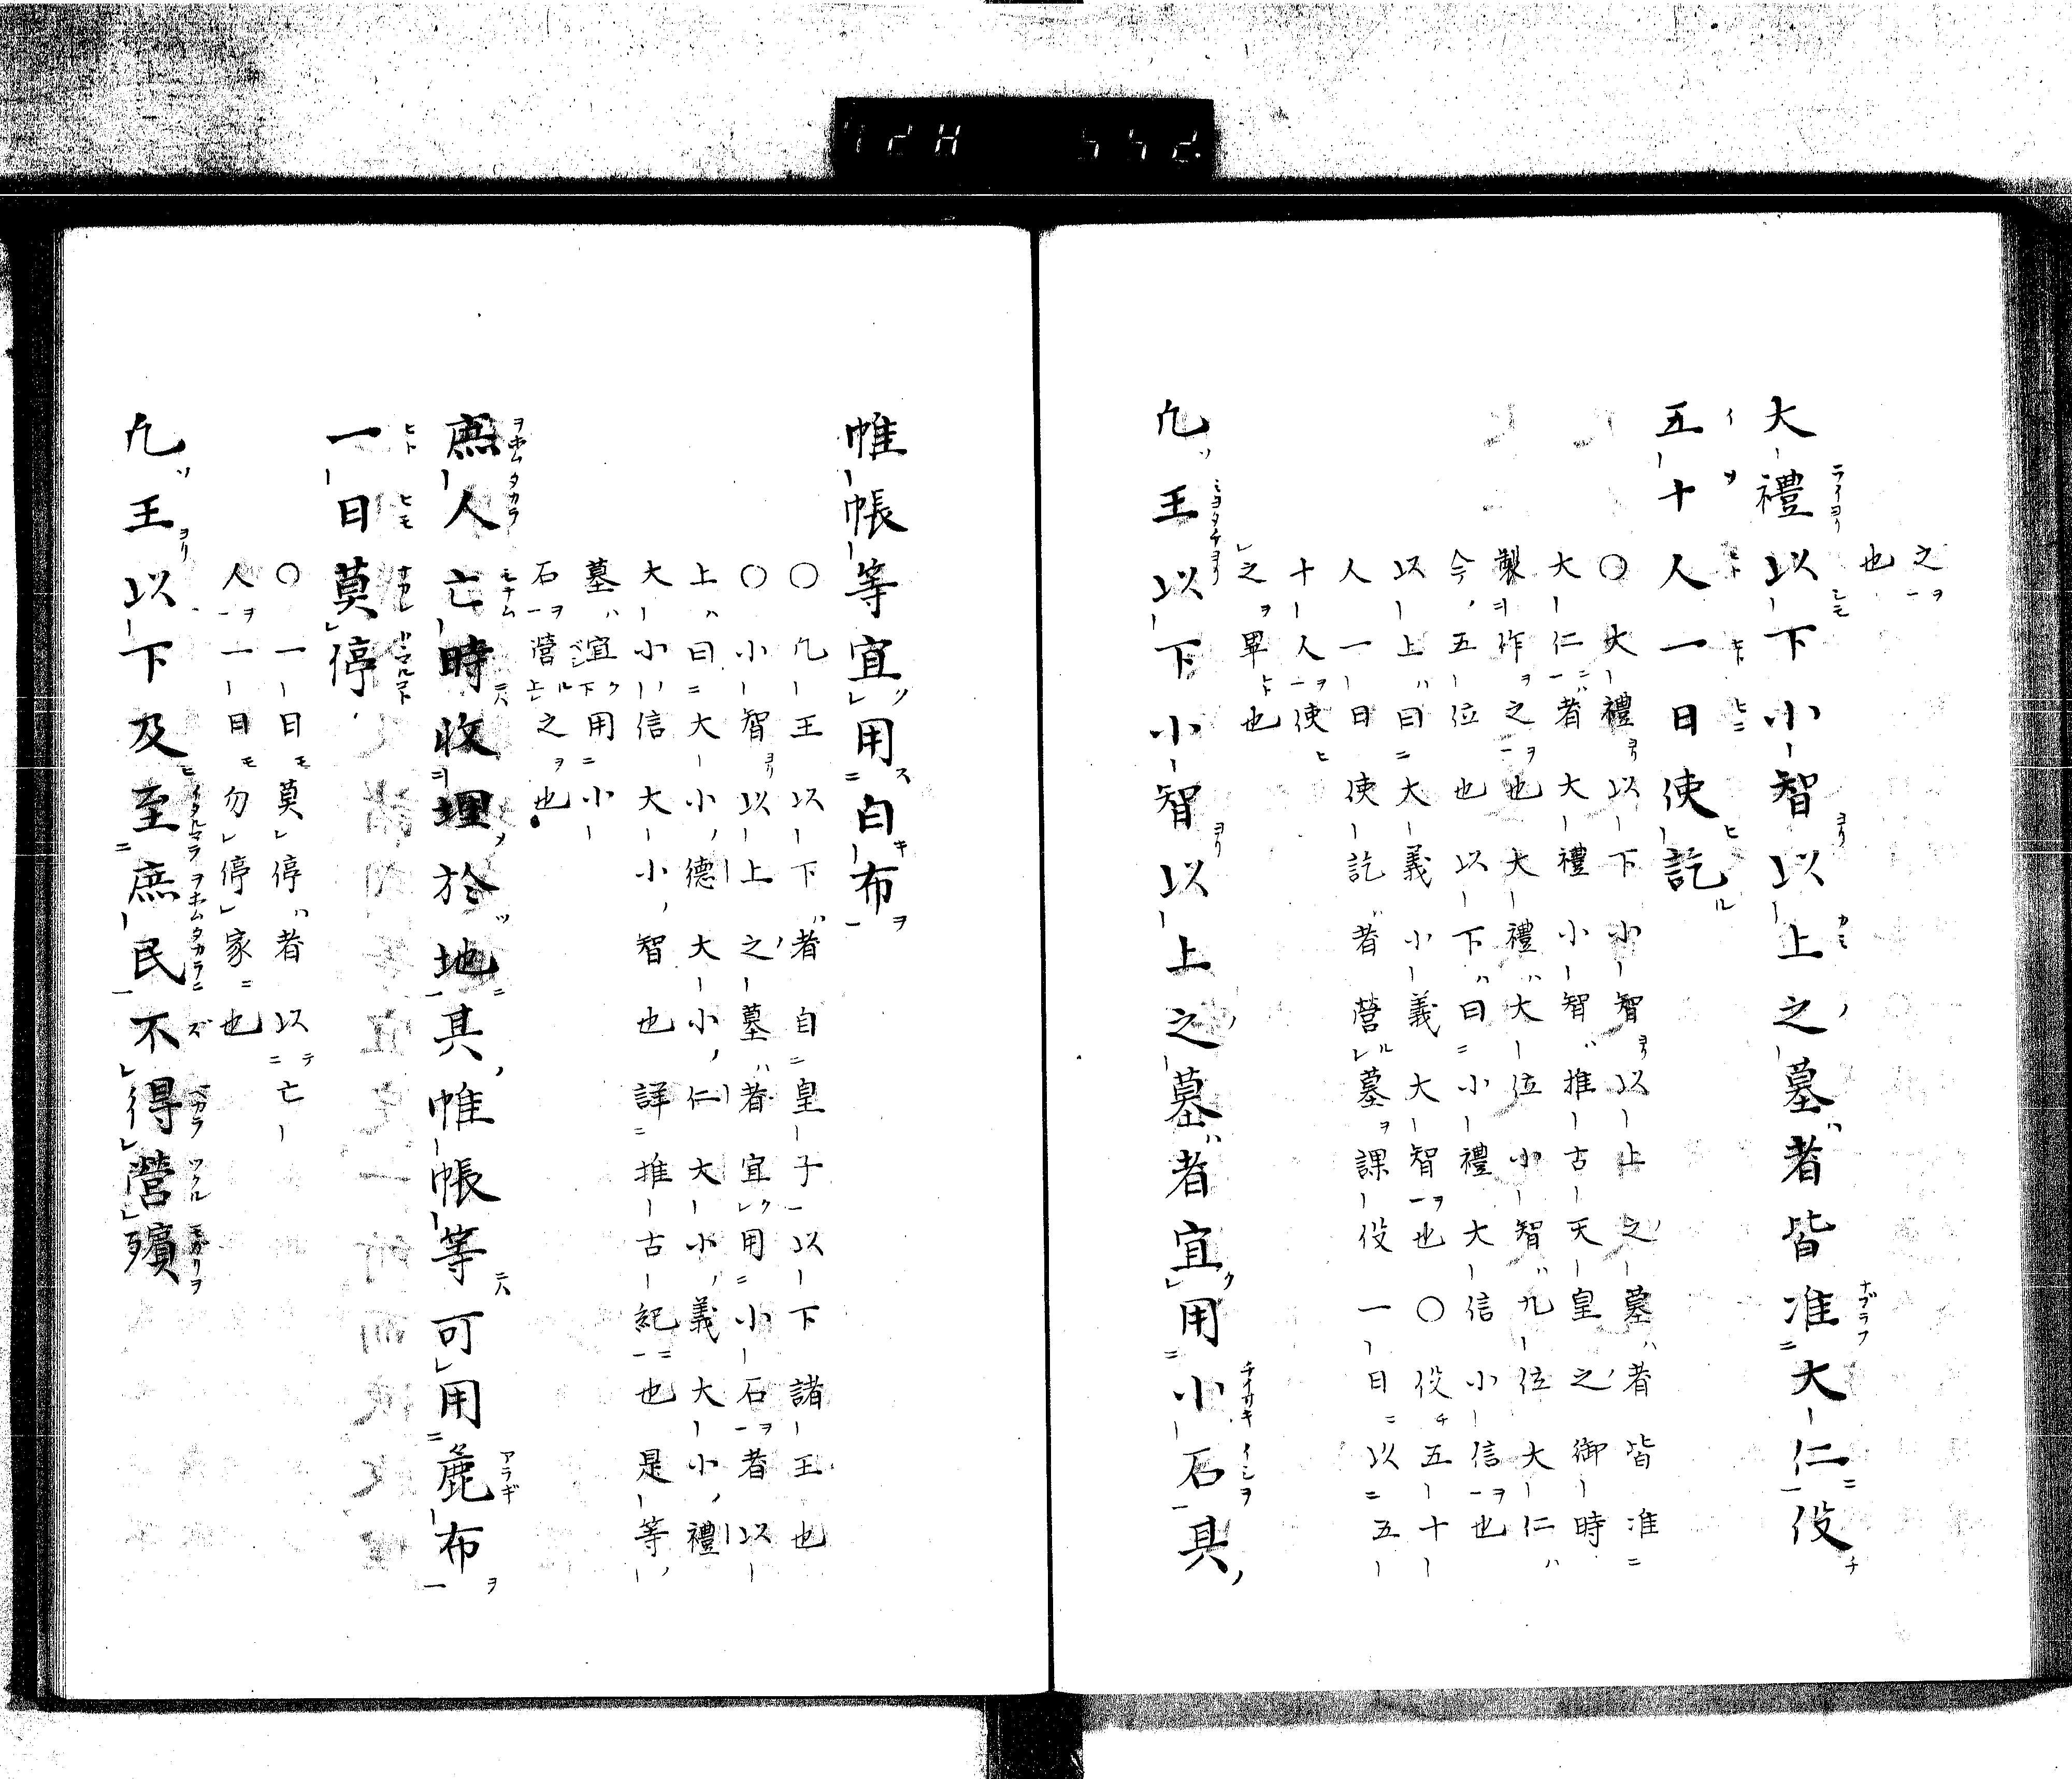 之
也
大禮以下小智以上之墓者皆准大仁役
五十人一日使訖
〇大禮以下小智以上之墓者皆准
大仁者大禮小智推古天皇之御時
製作之也大禮大位小智九位大仁
今五位也以下曰小禮大信小信也
以上曰大義小義大智也〇役五十
人一日使訖者營墓課役一日以五
十人使
之畢也
凢王以下小智以上之墓者宜用小石其
帷帳等宜用白布
〇凢王以下者自皇子以下諸王也
〇小智以上之墓者宜用小石者以
上曰大小德大小仁大小義大小禮
大小信大小智也詳推古紀也是等
墓宜用小
石營之也
庶人亡時收埋於地其帷帳等可用麁布
一日莫停
〇一日莫停者以亡
人一日勿停家也
凢王以下及至庶民不得營殯